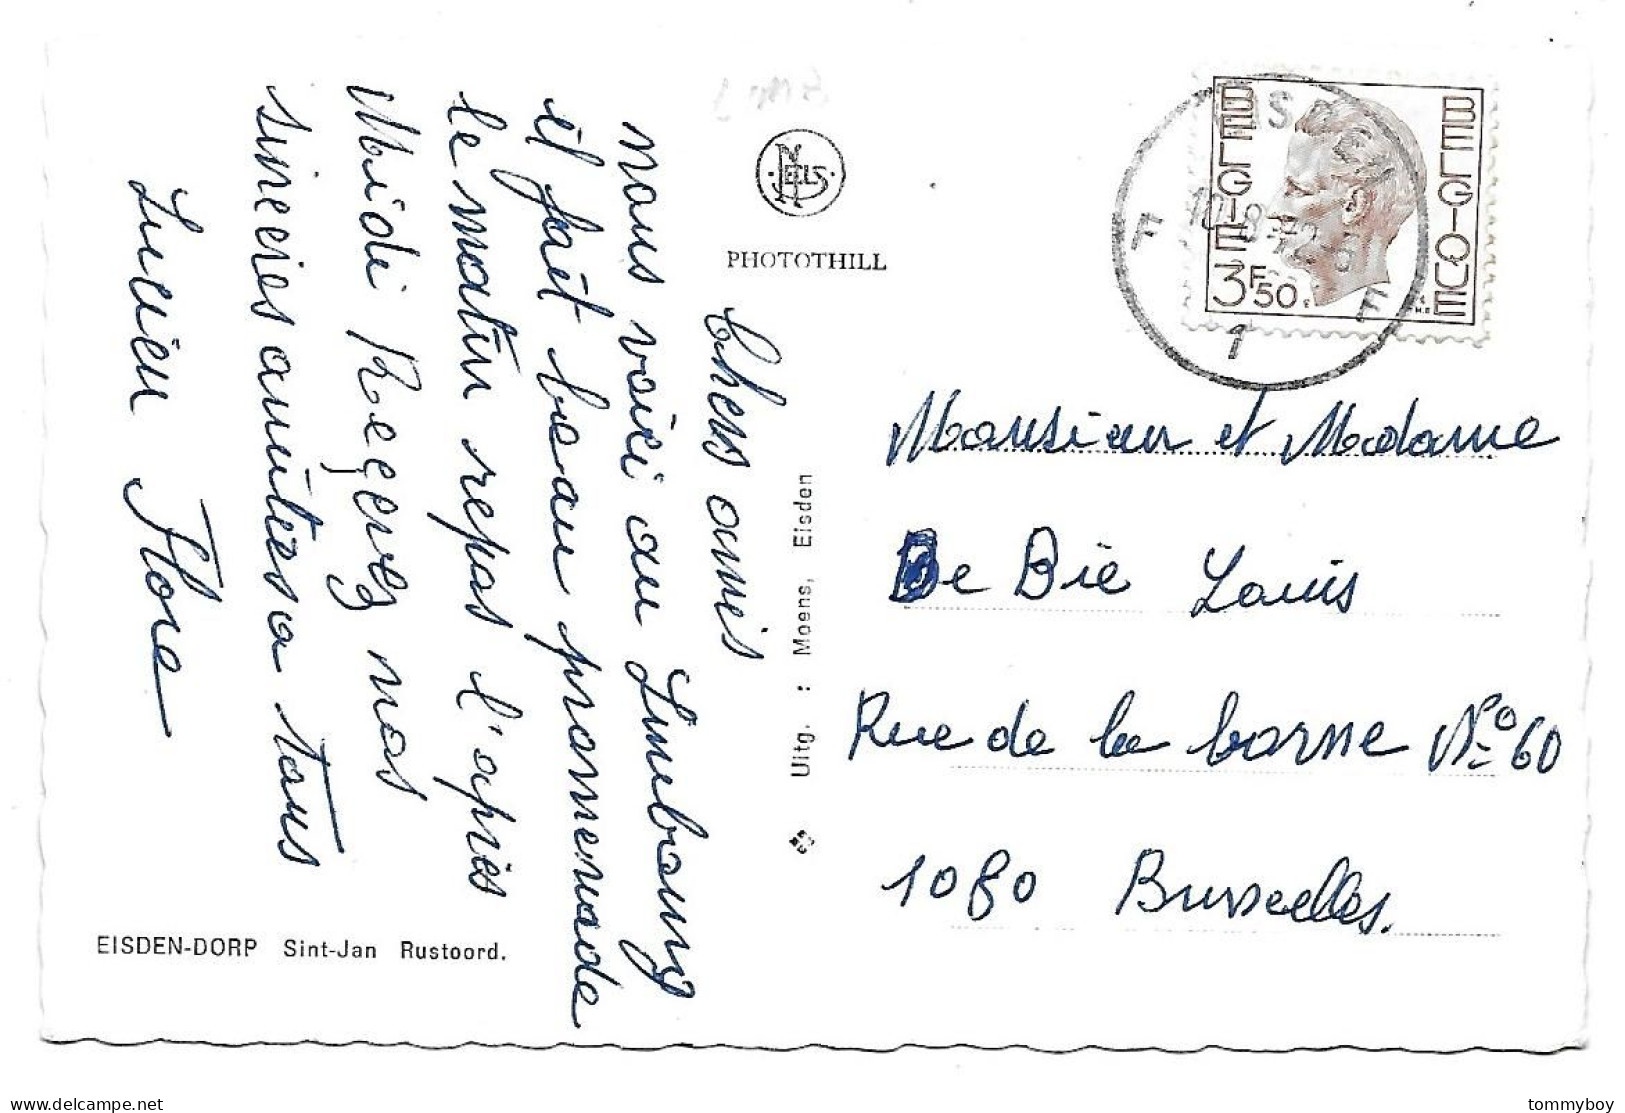 Chers amis
nous voici au Limbourg
il fait beau promenade
le matin repos l'après
Midi Recevez nos
sincères amitiés a tous
Lucien Flore
EISDEN-DORP Sint-Jan Rustoord.
Nels
PHOTOTHILL
Uitg. : Moens, Eisden
BELGIE
BELGIQUE
3F50
F F
1
Monsieur et Madame
De Bie Louis
Rue de la borne Nº 60
1080 Bruxelles.
delcampe.net
tommyboy